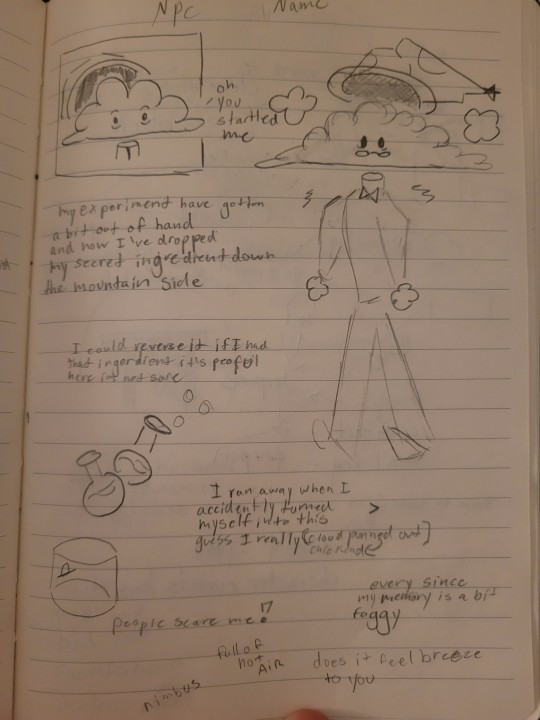 NPC Name
oh
you
startled
me
my experiment have gotton
a bit out of hand
and now I've dropped
my secret ingredient down
the mountain side
I could reverse it if I had
that ingordient it's
here it not safe
I ran away when I
accidently turned >
myself into this
guess I really [cloud panned out]
every since
my memory is a bit
foggy
people scare me!?
full of
hot
AiR
does it feel breeze
to you
nimbus